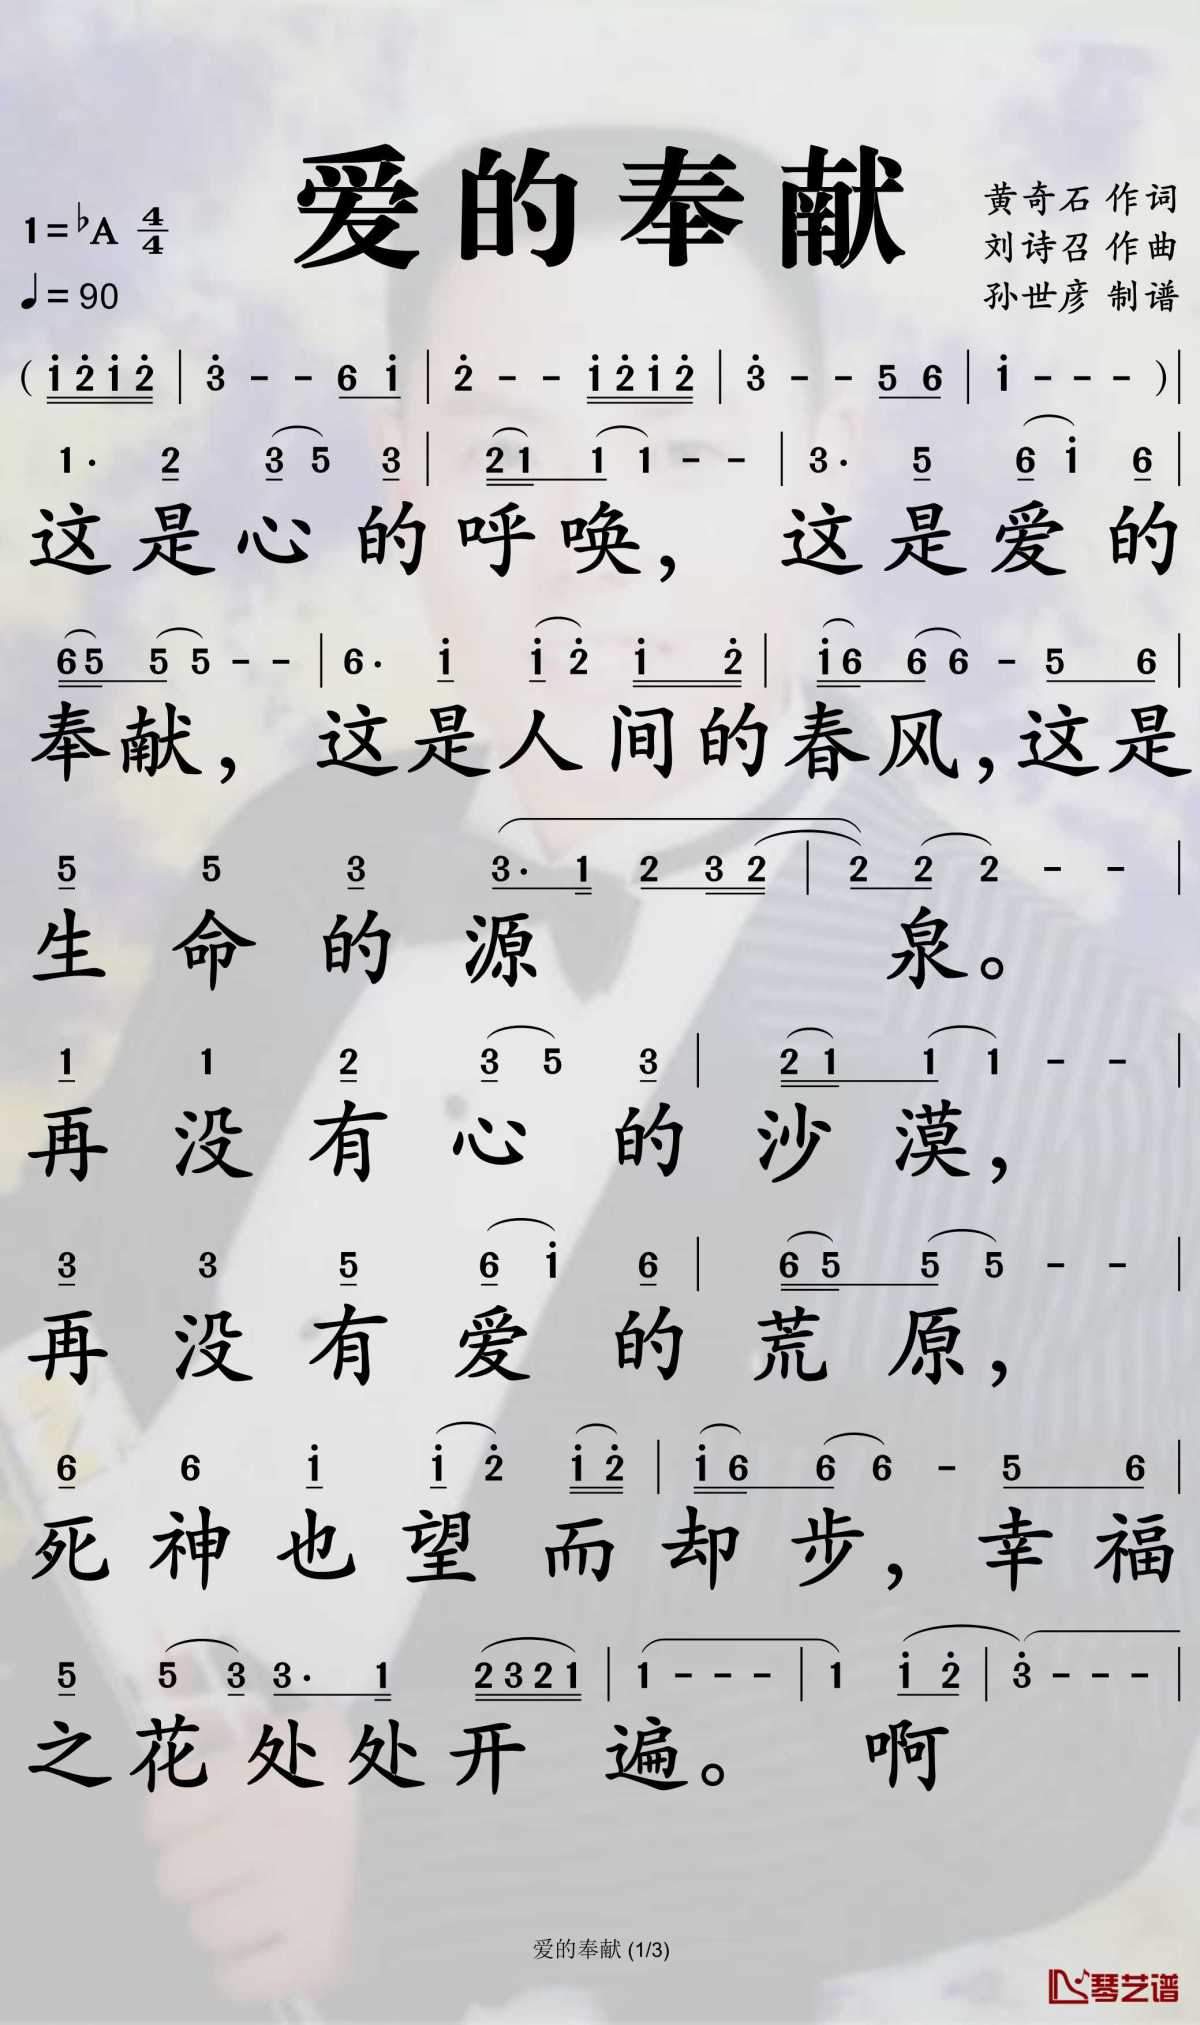 爱的奉献
1=♭A 4/4
♩=90
黄奇石 作词
刘诗召 作曲
孙世彦 制谱
( i̇ 2̇ i̇ 2̇ | 3̇ - - 6 i̇ | 2̇ - - i̇ 2̇ i̇ 2̇ | 3̇ - - 5 6 | i̇ - - - ) |
1· 2 3 5 3 | 2 1 1 1 - - | 3· 5 6 i̇ 6 |
这是心的呼唤，这是爱的
6 5 5 5 - - | 6· i̇ i̇ 2̇ i̇ 2̇ | i̇ 6 6 6 - 5 6 |
奉献，这是人间的春风，这是
5 5 3 3· 1 2 3 2 | 2 2 2 - - |
生命的源泉。
1 1 2 3 5 3 | 2 1 1 1 - - |
再没有心的沙漠，
3 3 5 6 i̇ 6 | 6 5 5 5 - - |
再没有爱的荒原，
6 6 i̇ i̇ 2̇ i̇ 2̇ | i̇ 6 6 6 - 5 6 |
死神也望而却步，幸福
5 5 3 3· 1 2 3 2 1 | 1 - - - | 1 i̇ 2̇ | 3̇ - - - |
之花处处开遍。啊
爱的奉献 (1/3)
琴艺谱